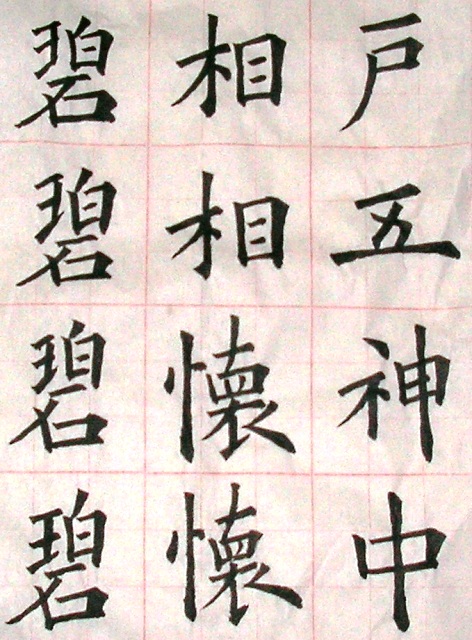 戸五神中
相相懐懐
碧碧碧碧